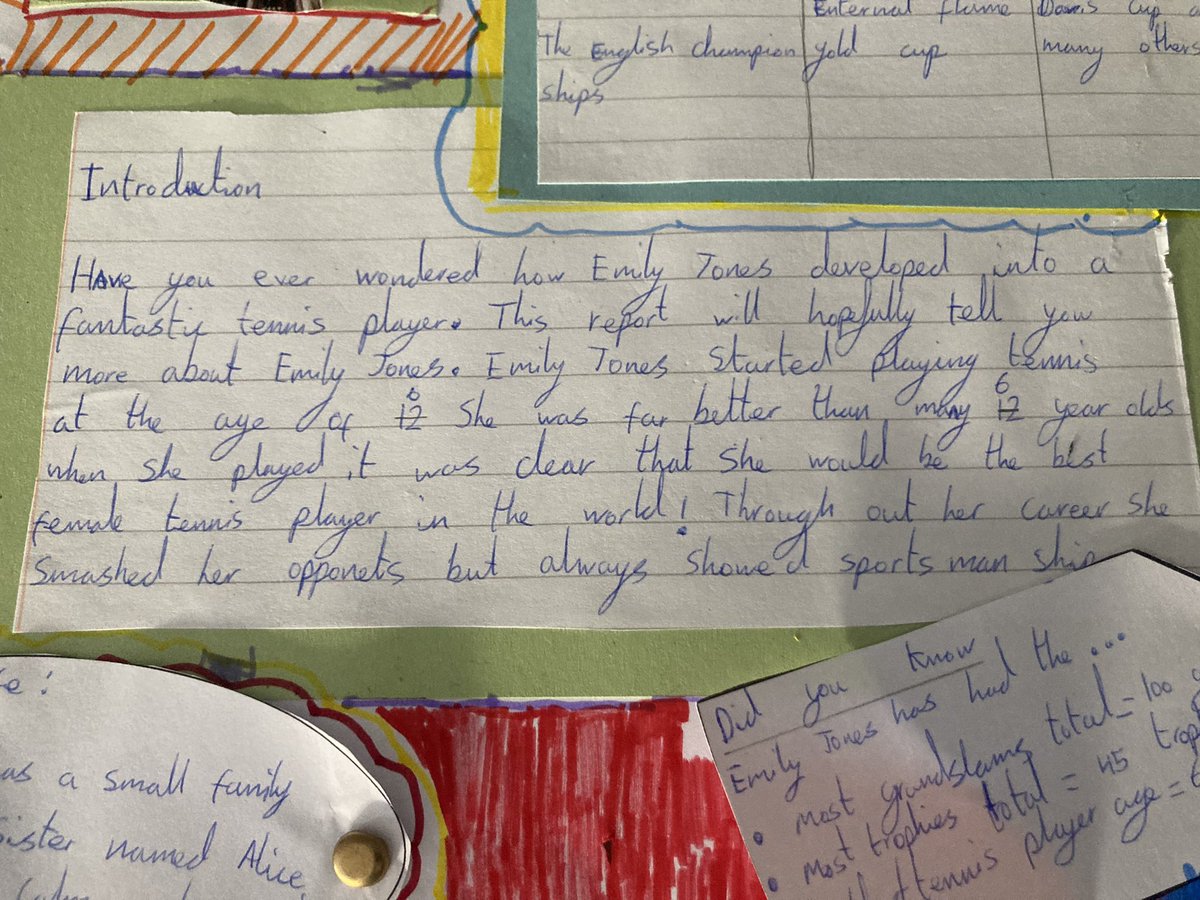 Enternal flame Davis Cup
The English champion gold cup many others
ships
Introduction
Have you ever wondered how Emily Jones developed into a
fantastic tennis player. This report will hopefully tell you
more about Emily Jones. Emily Jones Started playing tennis
at the age of 12 6 She was far better than many 12 6 year olds
when she played it was clear that she would be the best
female tennis player in the world! Through out her career she
Smashed her opponets but always showed sports man ship
as a small family
Sister named Alice
Did you know
Emily Jones has had the ...
• most grandslams total = 100
• most trophies total = 45
tennis player age =